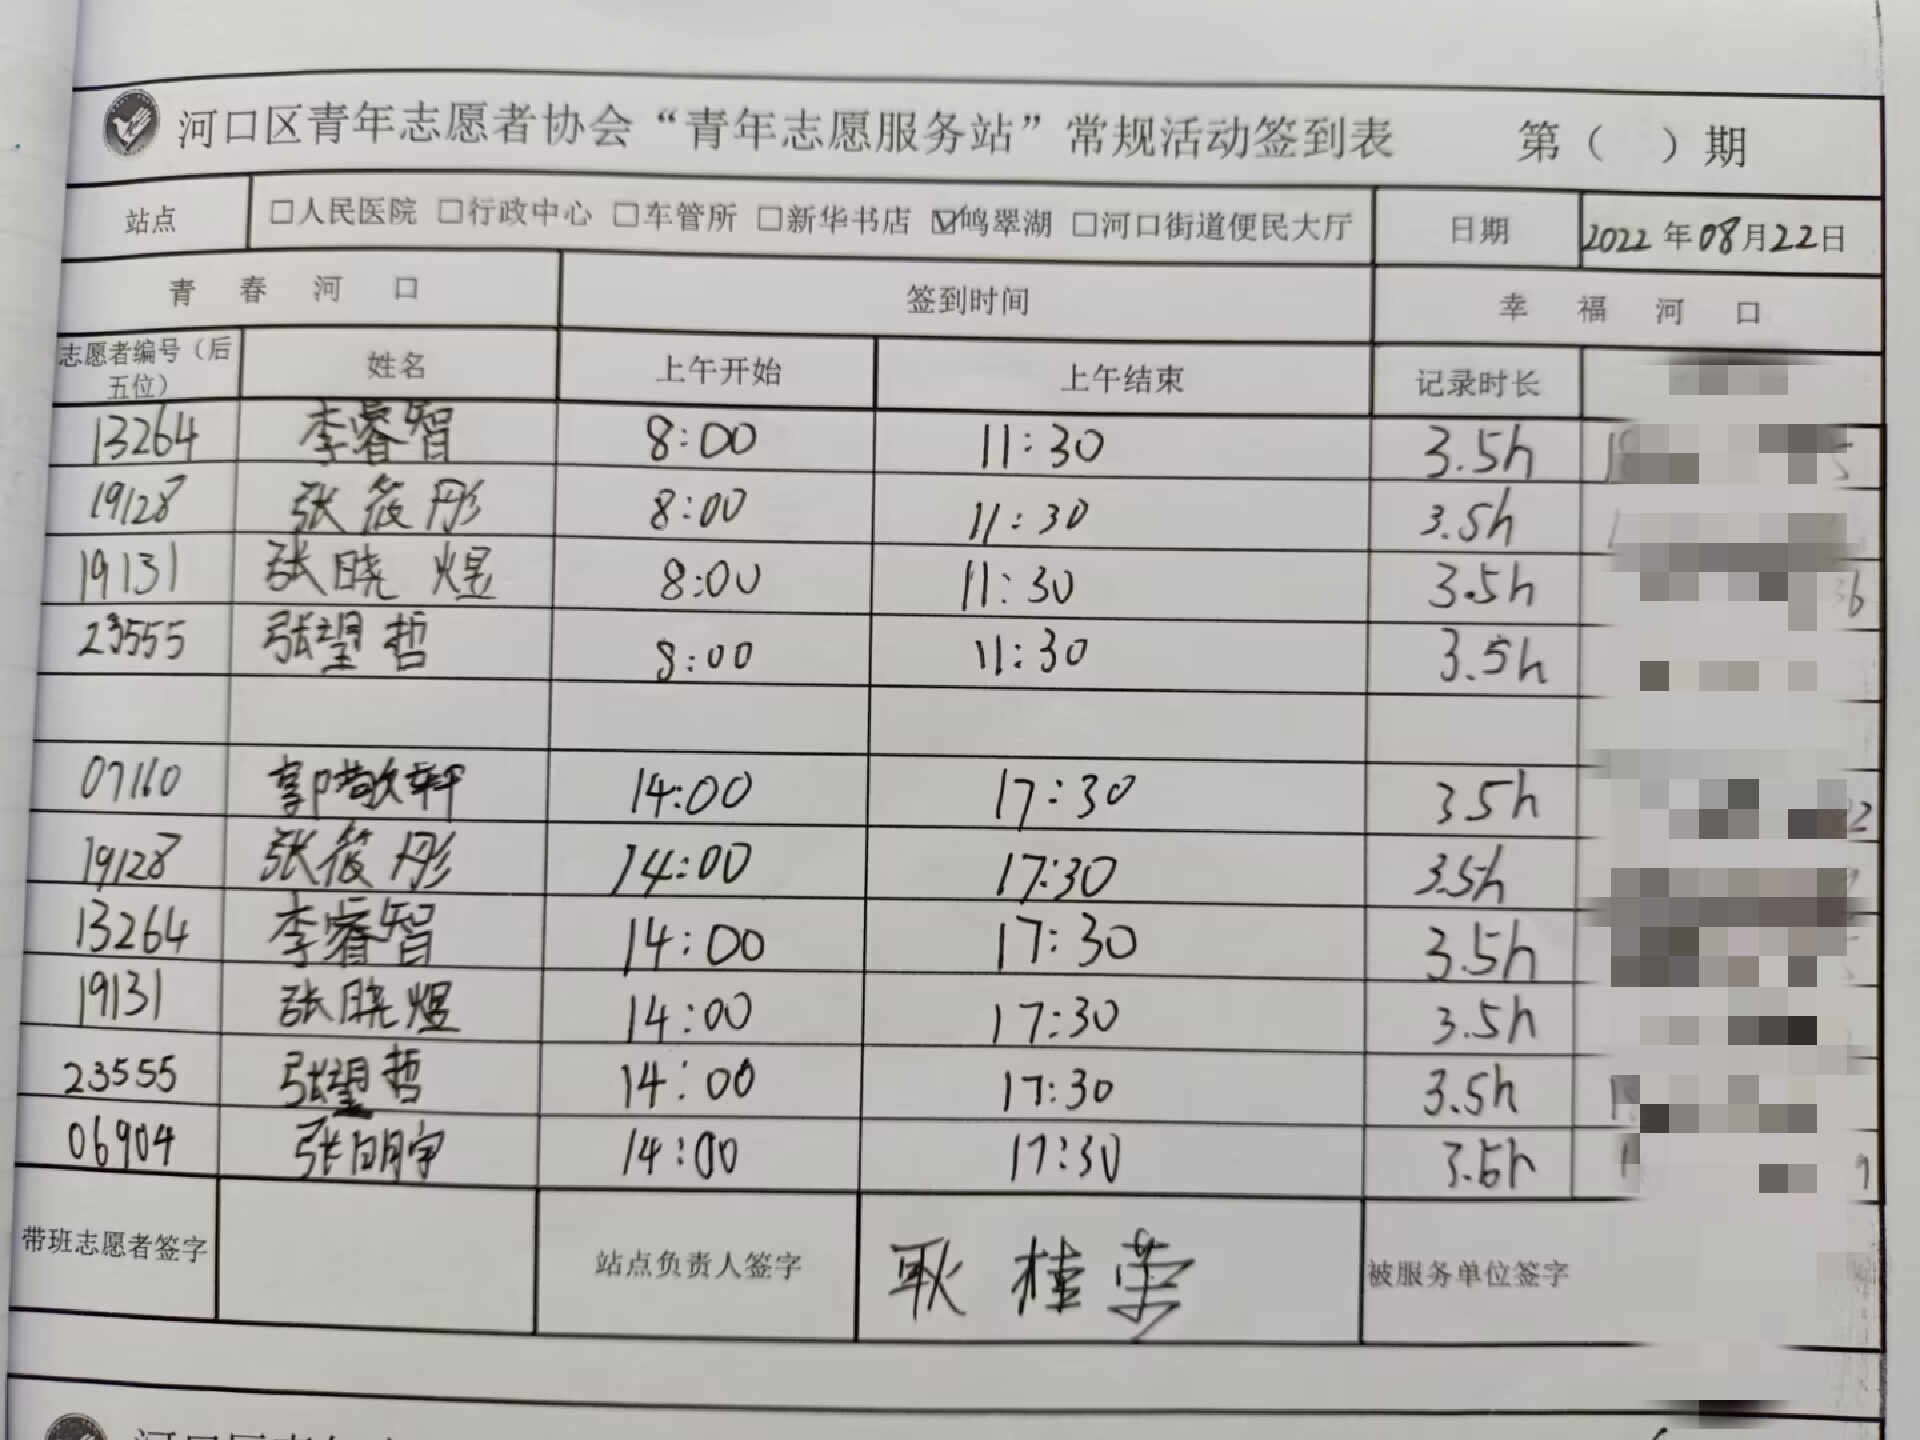 河口区青年志愿者协会“青年志愿服务站”常规活动签到表 第（ ）期
站点 □人民医院 □行政中心 □车管所 □新华书店 ☑鸣翠湖 □河口街道便民大厅 日期 2022年08月22日
青春河口 签到时间 幸福河口
志愿者编号（后五位） 姓名 上午开始 上午结束 记录时长
13264 李睿智 8:00 11:30 3.5h
19128 张筱彤 8:00 11:30 3.5h
19131 张晓煜 8:00 11:30 3.5h
23555 张望哲 8:00 11:30 3.5h
07160 郭敬轩 14:00 17:30 3.5h
19128 张筱彤 14:00 17:30 3.5h
13264 李睿智 14:00 17:30 3.5h
19131 张晓煜 14:00 17:30 3.5h
23555 张望哲 14:00 17:30 3.5h
06904 张明宇 14:00 17:30 3.5h
带班志愿者签字 站点负责人签字 耿桂荣 被服务单位签字